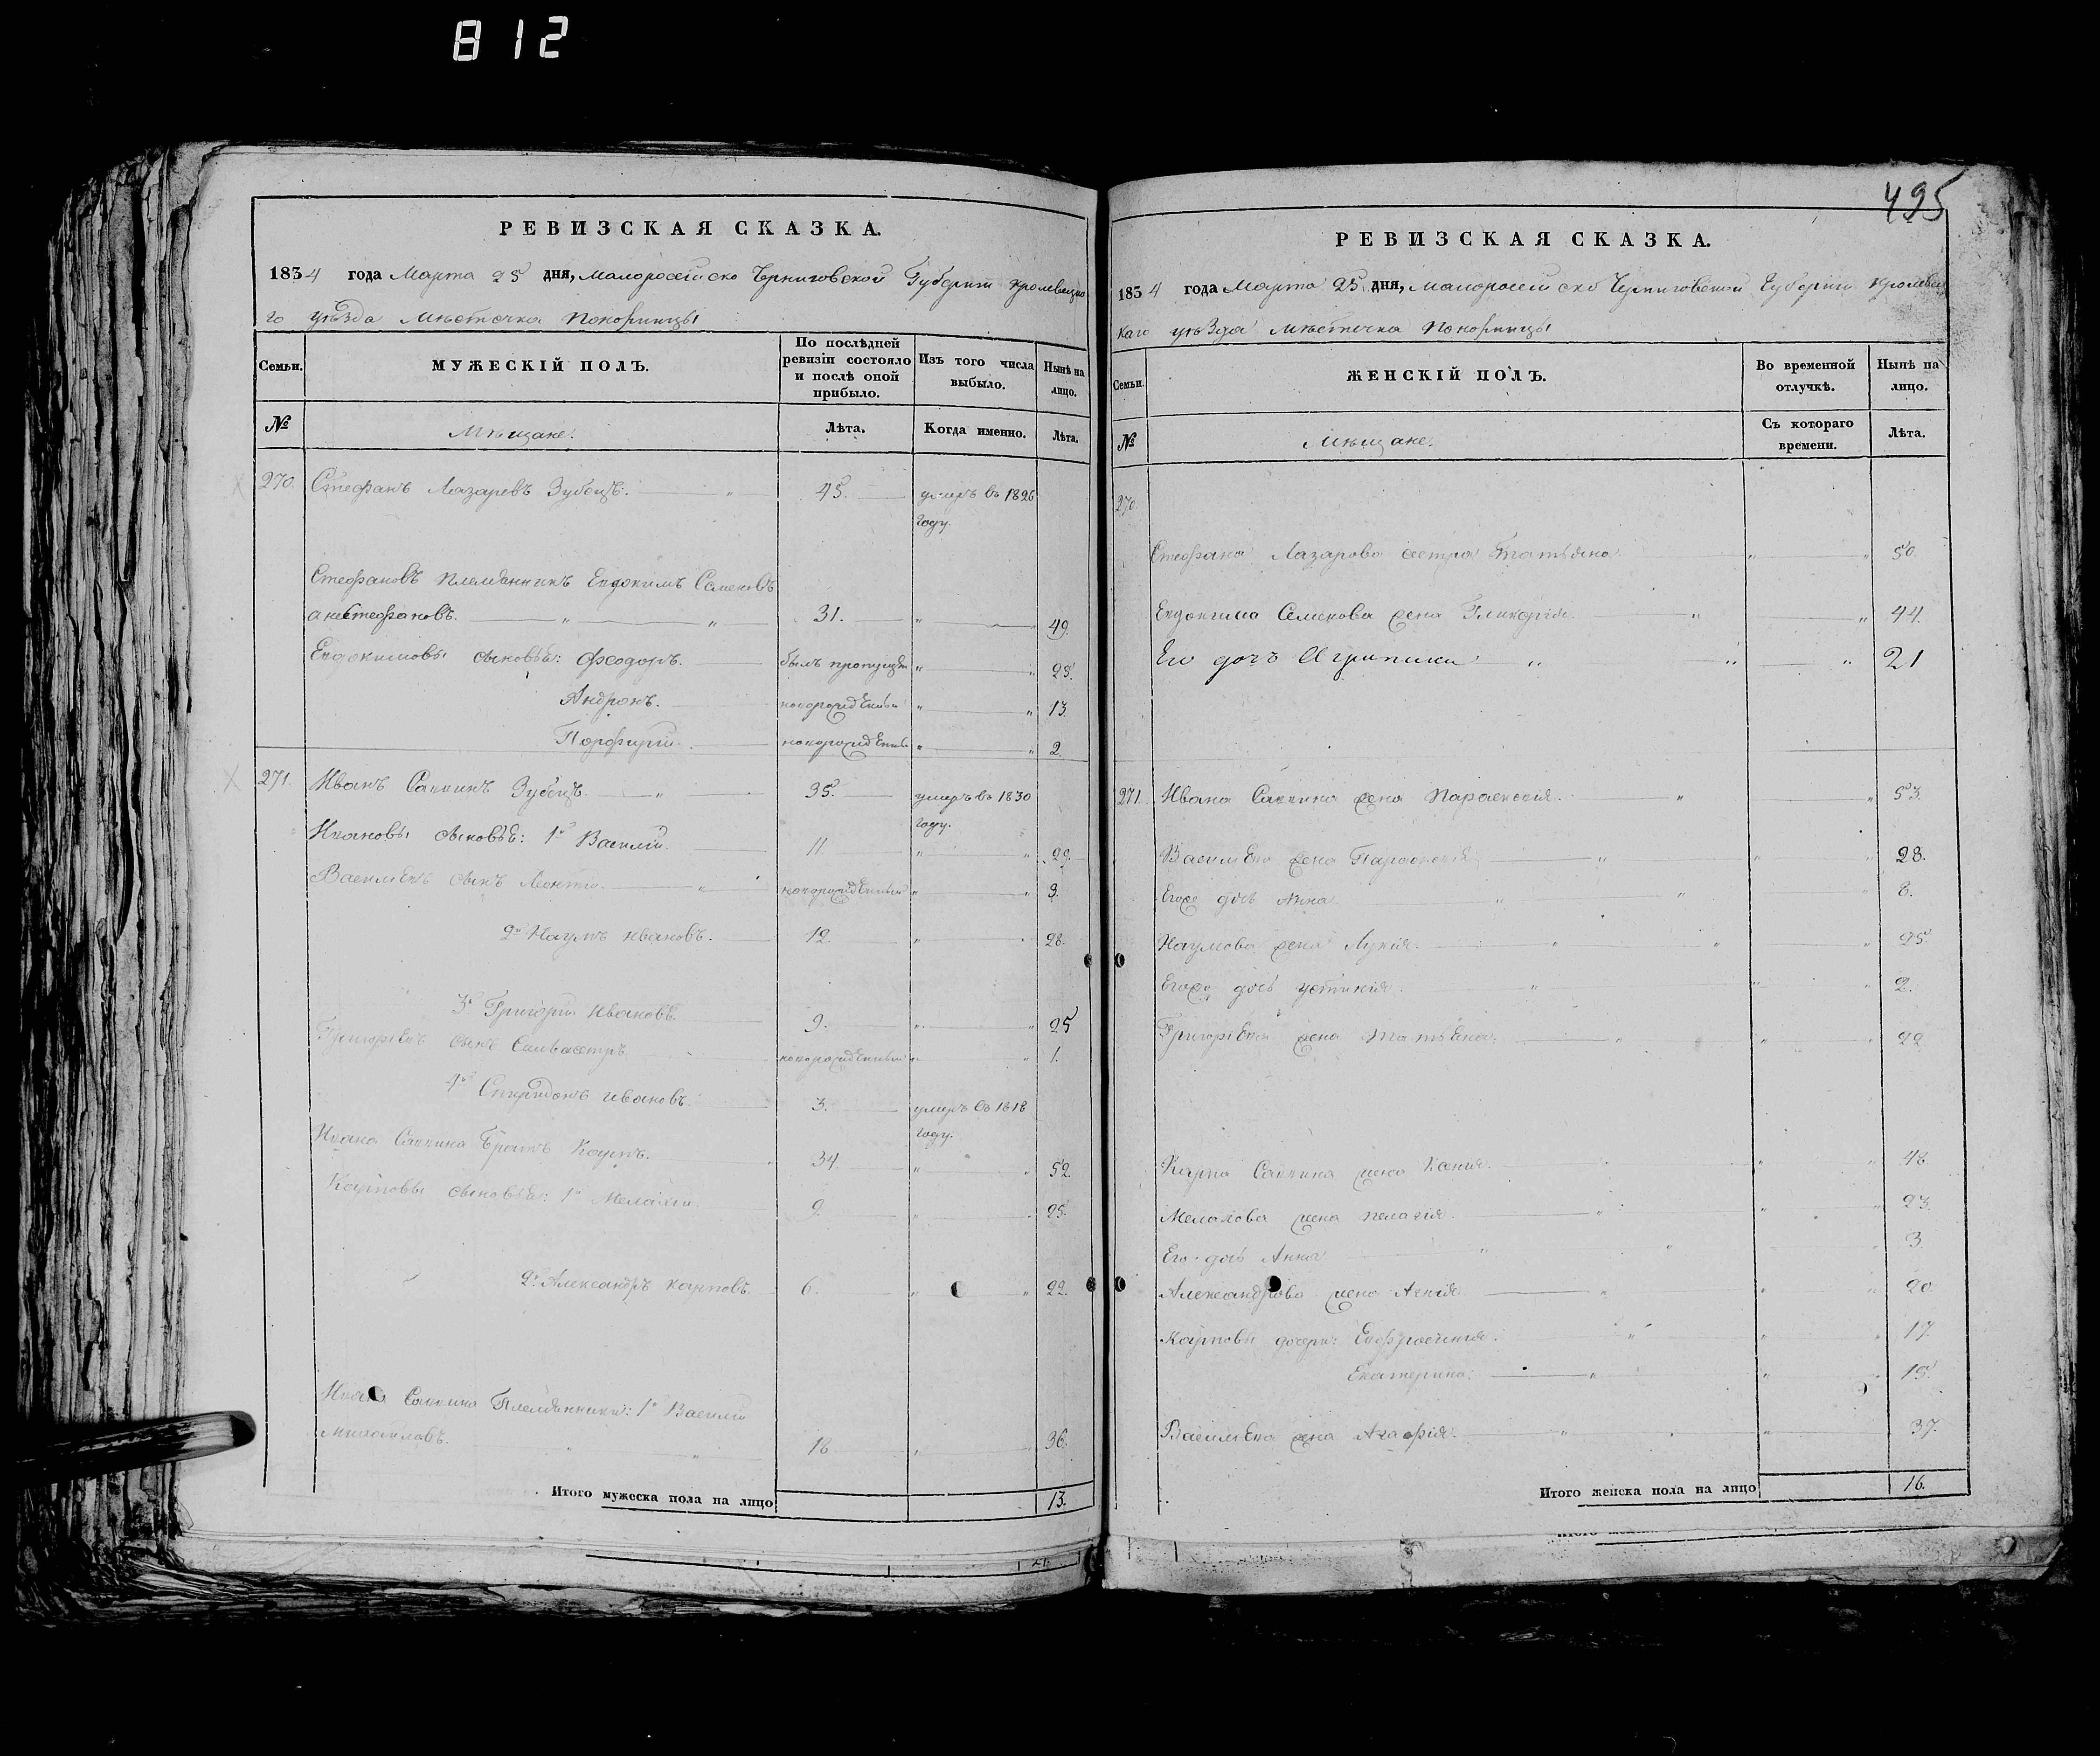 812
495
РЕВИЗСКАЯ СКАЗКА.
1834 года Марта 25 дня, Малоросейско Черниговской Губернии Кролевецко
го уѣзда Мѣстечка Понорницы
Семьи. МУЖЕСКІЙ ПОЛЪ. По послѣдней ревизіи состояло и послѣ оной прибыло. Изъ того числа выбыло. Нынѣ на лицо.
№ Мѣщане. Лѣта. Когда именно. Лѣта.
270. Стефанъ Лазаревъ Зубецъ. 45. умеръ въ 1826
году.
Стефановъ племянникъ Евдокимъ Семеновъ
а не Стефановъ. 31. 49.
Евдокимовы сыновья: Феодоръ. былъ пропущен 23.
Андронъ. новорожденный 13.
Порфирий. новорожденный 2.
271. Иванъ Саввинъ Зубецъ. 35. умеръ въ 1830
году.
Ивановы сыновья: 1й Василий 11 29.
Васильевъ сынъ Леонтий. новорожденный 3.
2й Наумъ Ивановъ. 12. 28.
3й Григорий Ивановъ. 9. 25
Григорьевъ сынъ Силвестръ новорожденный 1.
4й Спиридонъ Ивановъ. 3. умеръ въ 1818
году.
Ивана Саввина братъ Карпъ. 34 52.
Карповы сыновья: 1й 9. 25.
2й Александръ Карповъ. 6. 22.
Ивана Саввина Племянники: 1й Василий
Михайловъ. 18 36.
Итого мужеска пола на лицо 13.
РЕВИЗСКАЯ СКАЗКА.
1834 года Марта 25 дня, Малоросейско Черниговской Губернии Кролевец
каго уѣзда Мѣстечка Понорницы
Семьи. ЖЕНСКІЙ ПОЛЪ. Во временной отлучкѣ. Нынѣ на лицо.
№ Мѣщане. Съ котораго времени. Лѣта.
270.
Стефана Лазарева сестра Татьяна 50.
Евдокима Семенова жена Гликерия. 44.
Его дочь Агрипина 21
271. Ивана Саввина жена Параскевия. 53.
Васильева жена Параскевия 28.
Егоже дочь Анна 8.
Наумова жена Лукия. 25
Егоже дочь Устиния. 2.
Григорьева жена Татьяна. 22
Карпа Саввина жена Ксения. 48.
жена Пелагия. 23.
Его дочь Анна 3.
Александрова жена 20.
Карповы дочери: Евфросиния. 17.
Екатерина. 15.
Васильева жена Агафия. 37.
Итого женска пола на лицо 16.